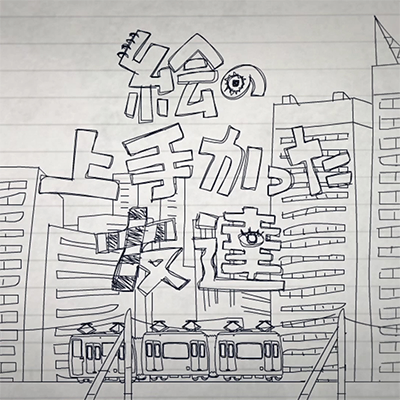 絵の
上手かった
友達